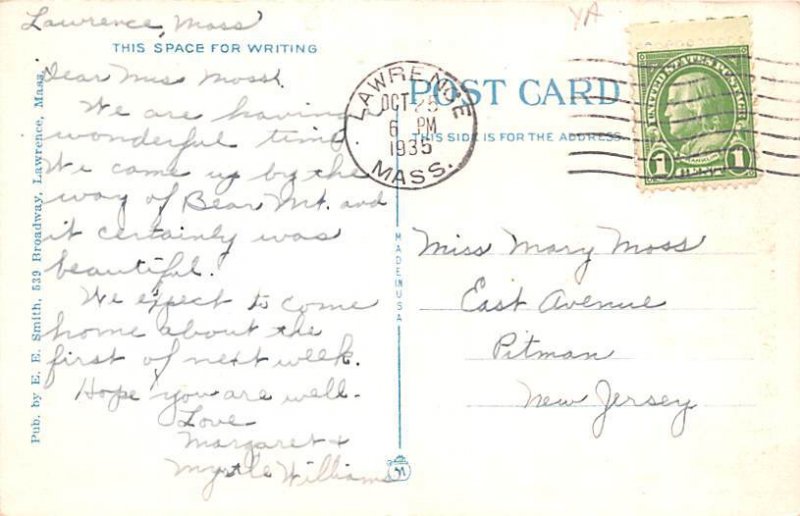 Lawrence, Mass
THIS SPACE FOR WRITING
Dear Miss Moss,
We are having
wonderful time
We came up by the
way of Bear Mt. and
it certainly was
beautiful.
We expect to come
home about the
first of next week.
Hope you are well.
Love
Margaret &
Myrtle Williams
Pub. by E. E. Smith, 539 Broadway, Lawrence, Mass.
MADE IN USA
YA
LAWRENCE
OCT 25
6 PM
1935
MASS.
POST CARD
THIS SIDE IS FOR THE ADDRESS
UNITED STATES POSTAGE
FRANKLIN
1 1
Miss Mary Moss
East Avenue
Pitman
New Jersey